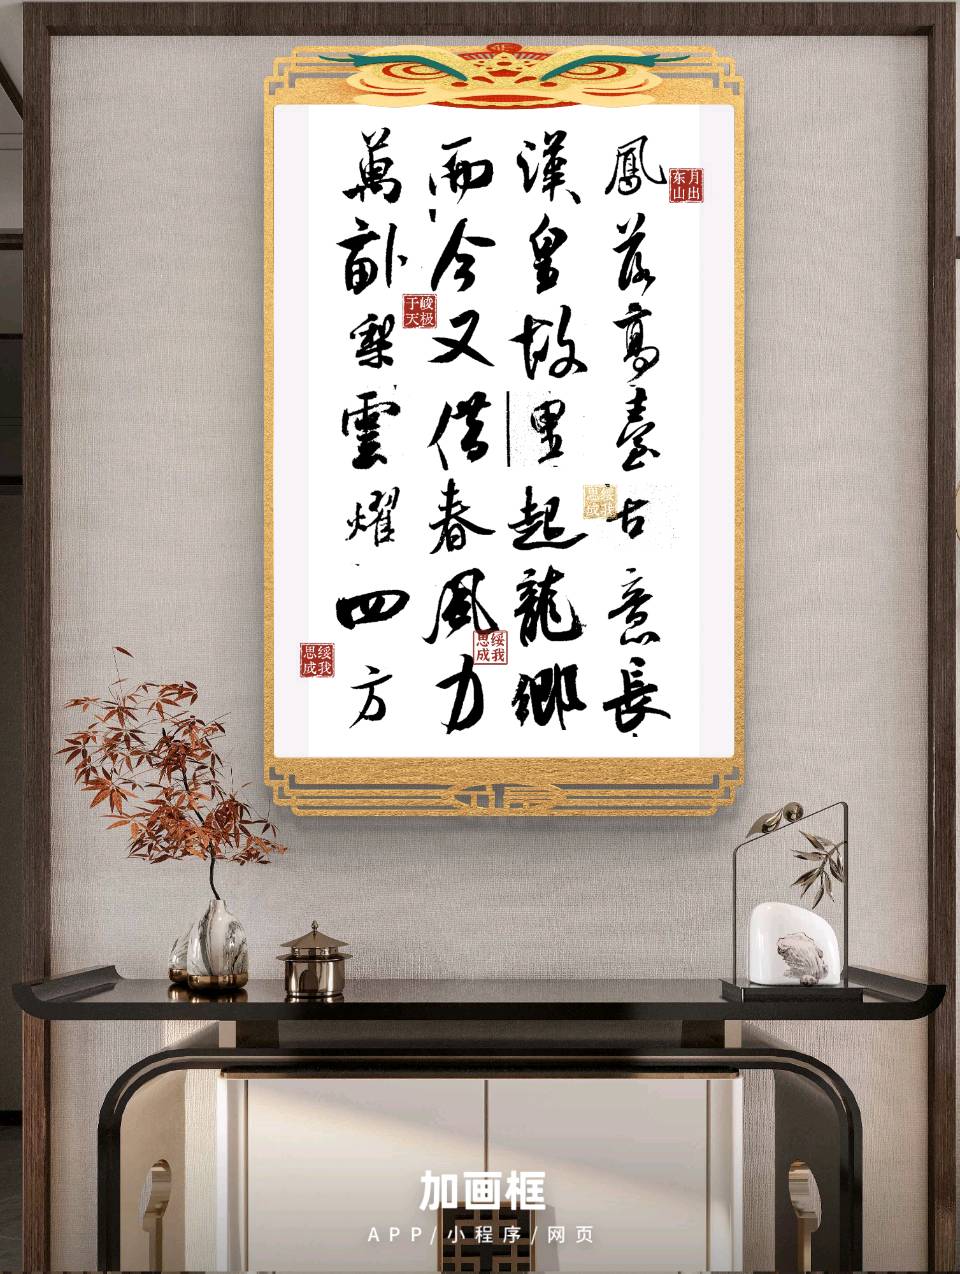 鳳落高臺古意長
漢皇故里起龍鄉
而今又借春風力
萬畝梨雲耀四方
月出
东山
峻极
于天
绥我
思成
绥我
思成
绥我
思成
加画框
APP/小程序/网页